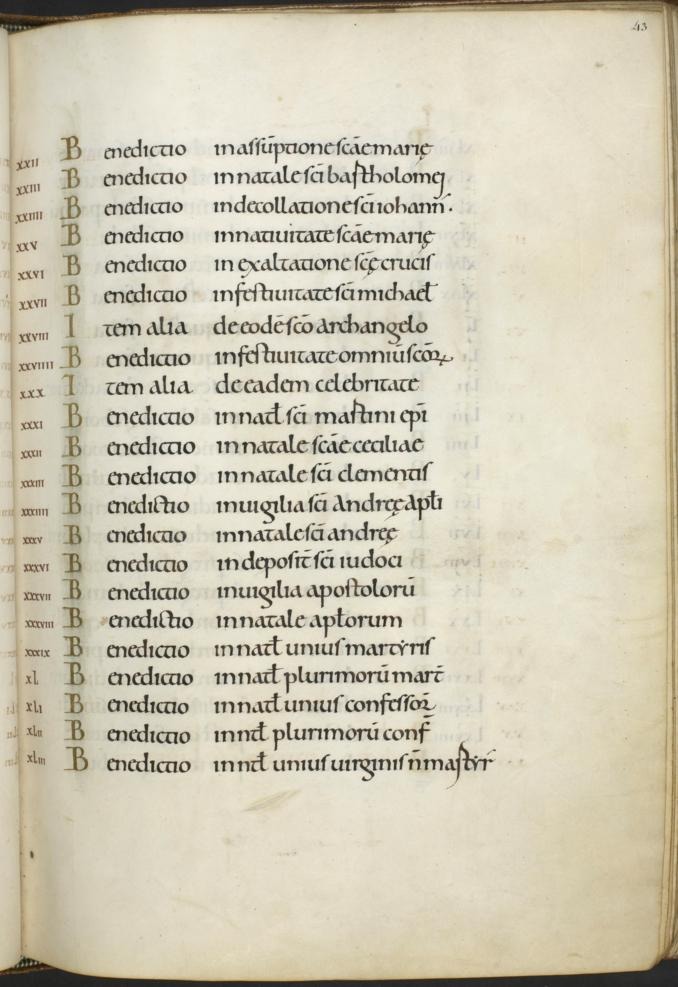 43
xxii Benedictio in assūptione scāe marię
xxiii Benedictio in natale scī bartholomęi
xxiiii Benedictio in decollatione scī iohann̄.
xxv Benedictio in natiuitate scāe marię
xxvi Benedictio in exaltatione scę̄ crucis
xxvii Benedictio in festiuitate scī michaeł
xxviii Item alia de eodē scō archangelo
xxviiii Benedictio in festiuitate omniū scōꝝ
xxx Item alia de eadem celebritate
xxxi Benedictio in nat̄ł scī martini ep̄i
xxxii Benedictio in natale scāe ceciliae
xxxiii Benedictio in natale scī clementis
xxxiiii Benedictio in uigilia scī Andreę apłi
xxxv Benedictio in natale scī andreę
xxxvi Benedictio in deposit̄ scī iudoci
xxxvii Benedictio in uigilia apostolorū
xxxviii Benedictio in natale apłorum
xxxix Benedictio in nat̄ł unius martyris
xl Benedictio in nat̄ł plurimorū mart̄
xli Benedictio in nat̄ł unius confessoꝝ
xlii Benedictio in nt̄ł plurimorū conf̄
xliii Benedictio in nt̄ł unius uirginis n̄ martyr̄